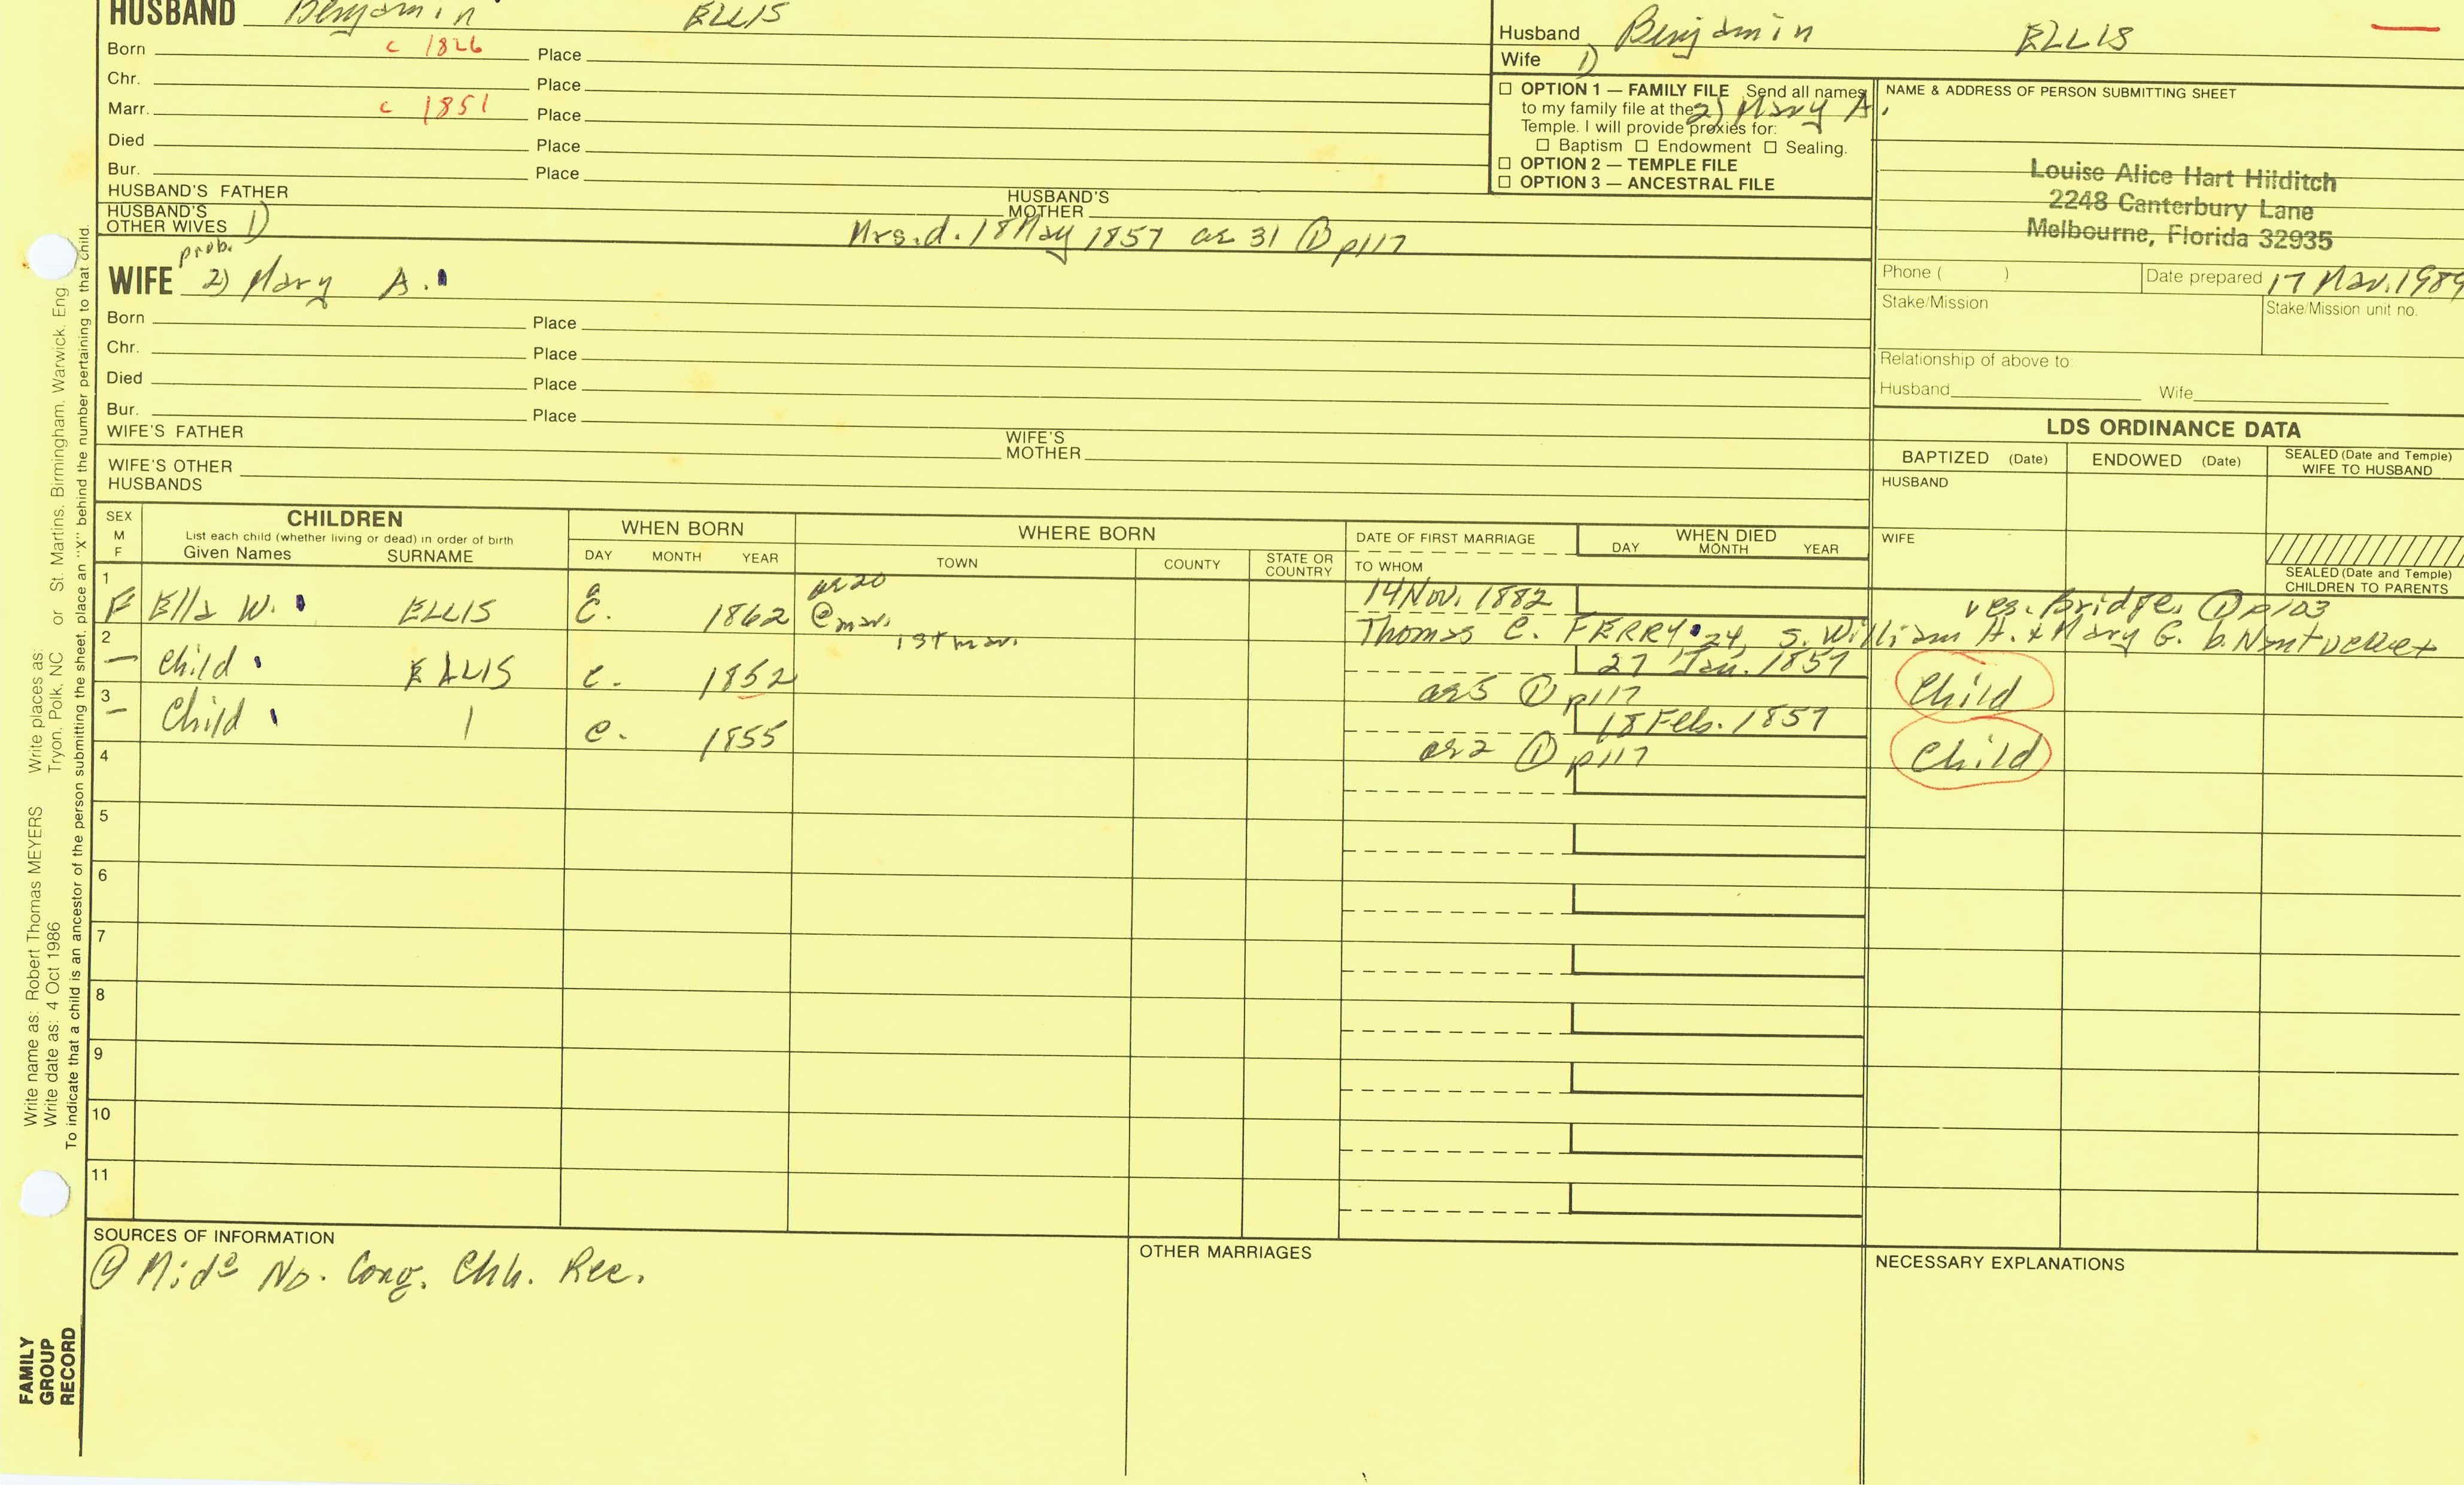 HUSBAND Benjamin ELLIS
Born c 1826 Place
Chr. Place
Marr. c 1851 Place
Died Place
Bur. Place
HUSBAND'S FATHER HUSBAND'S MOTHER
HUSBAND'S OTHER WIVES 1) Mrs. d. 18 May 1857 ae 31 ① p117
prob.
WIFE 2) Mary A.
Born Place
Chr. Place
Died Place
Bur. Place
WIFE'S FATHER WIFE'S MOTHER
WIFE'S OTHER HUSBANDS
Husband Benjamin ELLIS
Wife 1)
2) Mary A.
☐ OPTION 1 — FAMILY FILE Send all names
to my family file at the
Temple. I will provide proxies for:
☐ Baptism ☐ Endowment ☐ Sealing.
☐ OPTION 2 — TEMPLE FILE
☐ OPTION 3 — ANCESTRAL FILE
NAME & ADDRESS OF PERSON SUBMITTING SHEET
Louise Alice Hart Hilditch
2248 Canterbury Lane
Melbourne, Florida 32935
Phone ( ) Date prepared 17 Mar. 1989
Stake/Mission Stake/Mission unit no.
Relationship of above to
Husband Wife
LDS ORDINANCE DATA
BAPTIZED (Date) ENDOWED (Date) SEALED (Date and Temple) WIFE TO HUSBAND
HUSBAND
WIFE
SEALED (Date and Temple)
CHILDREN TO PARENTS
SEX M F CHILDREN WHEN BORN WHERE BORN DATE OF FIRST MARRIAGE WHEN DIED
List each child (whether living or dead) in order of birth
Given Names SURNAME DAY MONTH YEAR TOWN COUNTY STATE OR COUNTRY TO WHOM DAY MONTH YEAR
1 F Ella W. ELLIS c. 1862 ae 20 @ mar. 14 Nov. 1882 res. Bridge. ① p103
1st mar. Thomas C. FERRY 24, s. William H. & Mary G. b. Nantucket
2 — Child ELLIS c. 1852 27 Jan. 1857 Child
ae 5 ① p117
3 — Child | c. 1855 18 Feb. 1857 Child
ae 2 ① p117
4
5
6
7
8
9
10
11
SOURCES OF INFORMATION
① Mid^o No. Cong. Chh. Rec.
OTHER MARRIAGES
NECESSARY EXPLANATIONS
Write name as: Robert Thomas MEYERS Write places as: St. Martins, Birmingham, Warwick, Eng.
Write date as: 4 Oct 1986 Tryon, Polk, NC or
To indicate that a child is an ancestor of the person submitting the sheet, place an "X" behind the number pertaining to that child.
FAMILY
GROUP
RECORD